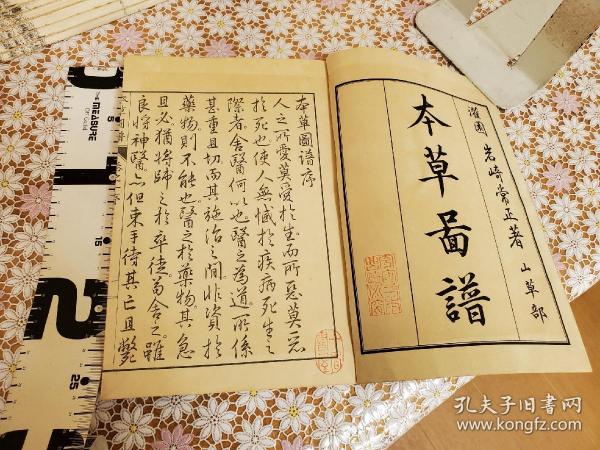 灌園 岩崎常正著 山草部
本草圖譜
本草圖譜序
人之所愛莫愛於生而所惡莫惡
於死也使人無憾於疾病死生之
際者舍醫何以也醫之為道所係
甚重且切而其施治之間非資於
藥物則不能也醫之於藥物其急
且必猶將帥之於卒徒苟舍之雖
良將神醫亦但束手待其亡且斃
MEASURE
15
2
25
孔夫子旧書网
kongfz.com